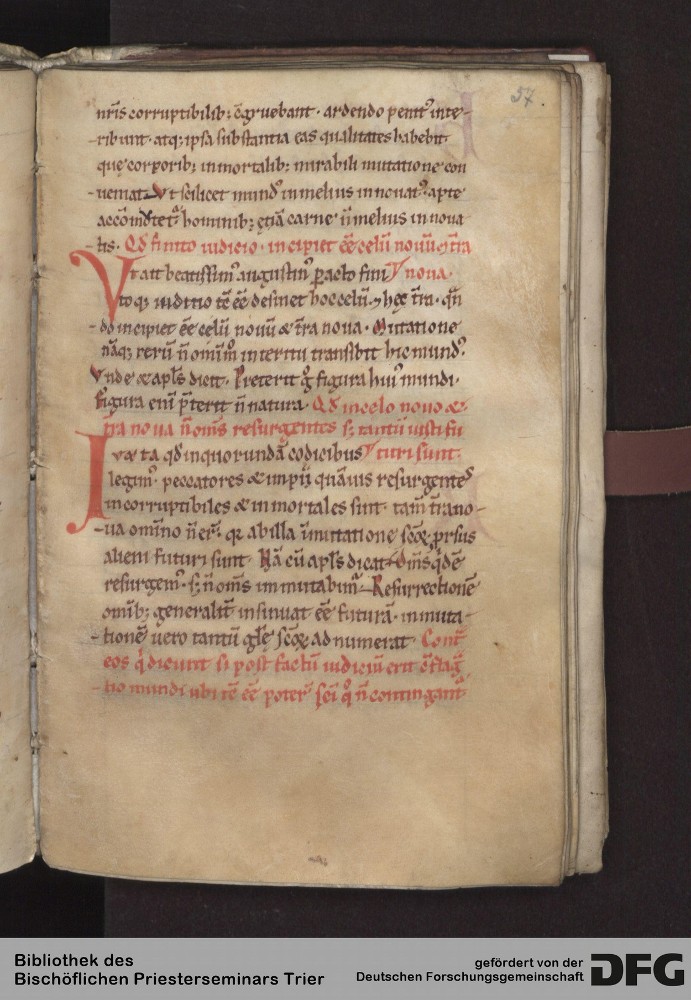 57.
nr̄is corruptibilib; c̄gruebant. ardendo penit᷒ inte-
-ribunt. atq; ipsa substantia eas qualitates habebit
que corporib; inmortalib; mirabili mutatione con
-ueniat. Vt scilicet mund᷒ inmelius innouat᷒. apte
accōmdtet᷒ hominib; etiā carne īmelius innoua
-tis. Qd finito iudicio. incipiet ēē celū nouū & tr̄a
Vt ait beatissim᷒ augustin᷒ pacto fini nova.
toq; iuditio tē ēē desinet hoc celū & hec tr̄a. qn̄
-do incipiet ēē celū nouū & tr̄a noua. Mutatione
nāq; rerū n̄ omīm᷒ interitu transibit hic mund᷒.
Vnde & apl̄s dicit. Preterit g̊ figura hui᷒ mundi.
figura eni p̄terit n̄ natura. Qd incelo nouo &
tr̄a noua n̄ om̄s resurgentes s; tantū iusti fu
Iuxta qd inquorundā codicibus turi sunt.
legim᷒. peccatores & impij quāuis resurgentes
incorruptibiles & inmortales sunt. tam̄ tr̄ano-
-ua omīno n̄ er̄t. qr abilla īmutatione scōꝝ prsus
alieni futuri sunt. Nā cū apl̄s dicat. Om̄s qdē
resurgem᷒. s; n̄ om̄s immutabim᷒. Resurrectionē
omīb; generalit̄ insinuat ēē futurā. inmuta-
-tionē uero tantū glē scōꝝ adnumerat. Cont̄
eos q̇ dicunt si post factū iudiciū erit c̄flag̊
-tio mundi ubi tē ēē poter̄t sc̄i q̊ n̄ contingant
Bibliothek des
Bischöflichen Priesterseminars Trier
gefördert von der
Deutschen Forschungsgemeinschaft
DFG